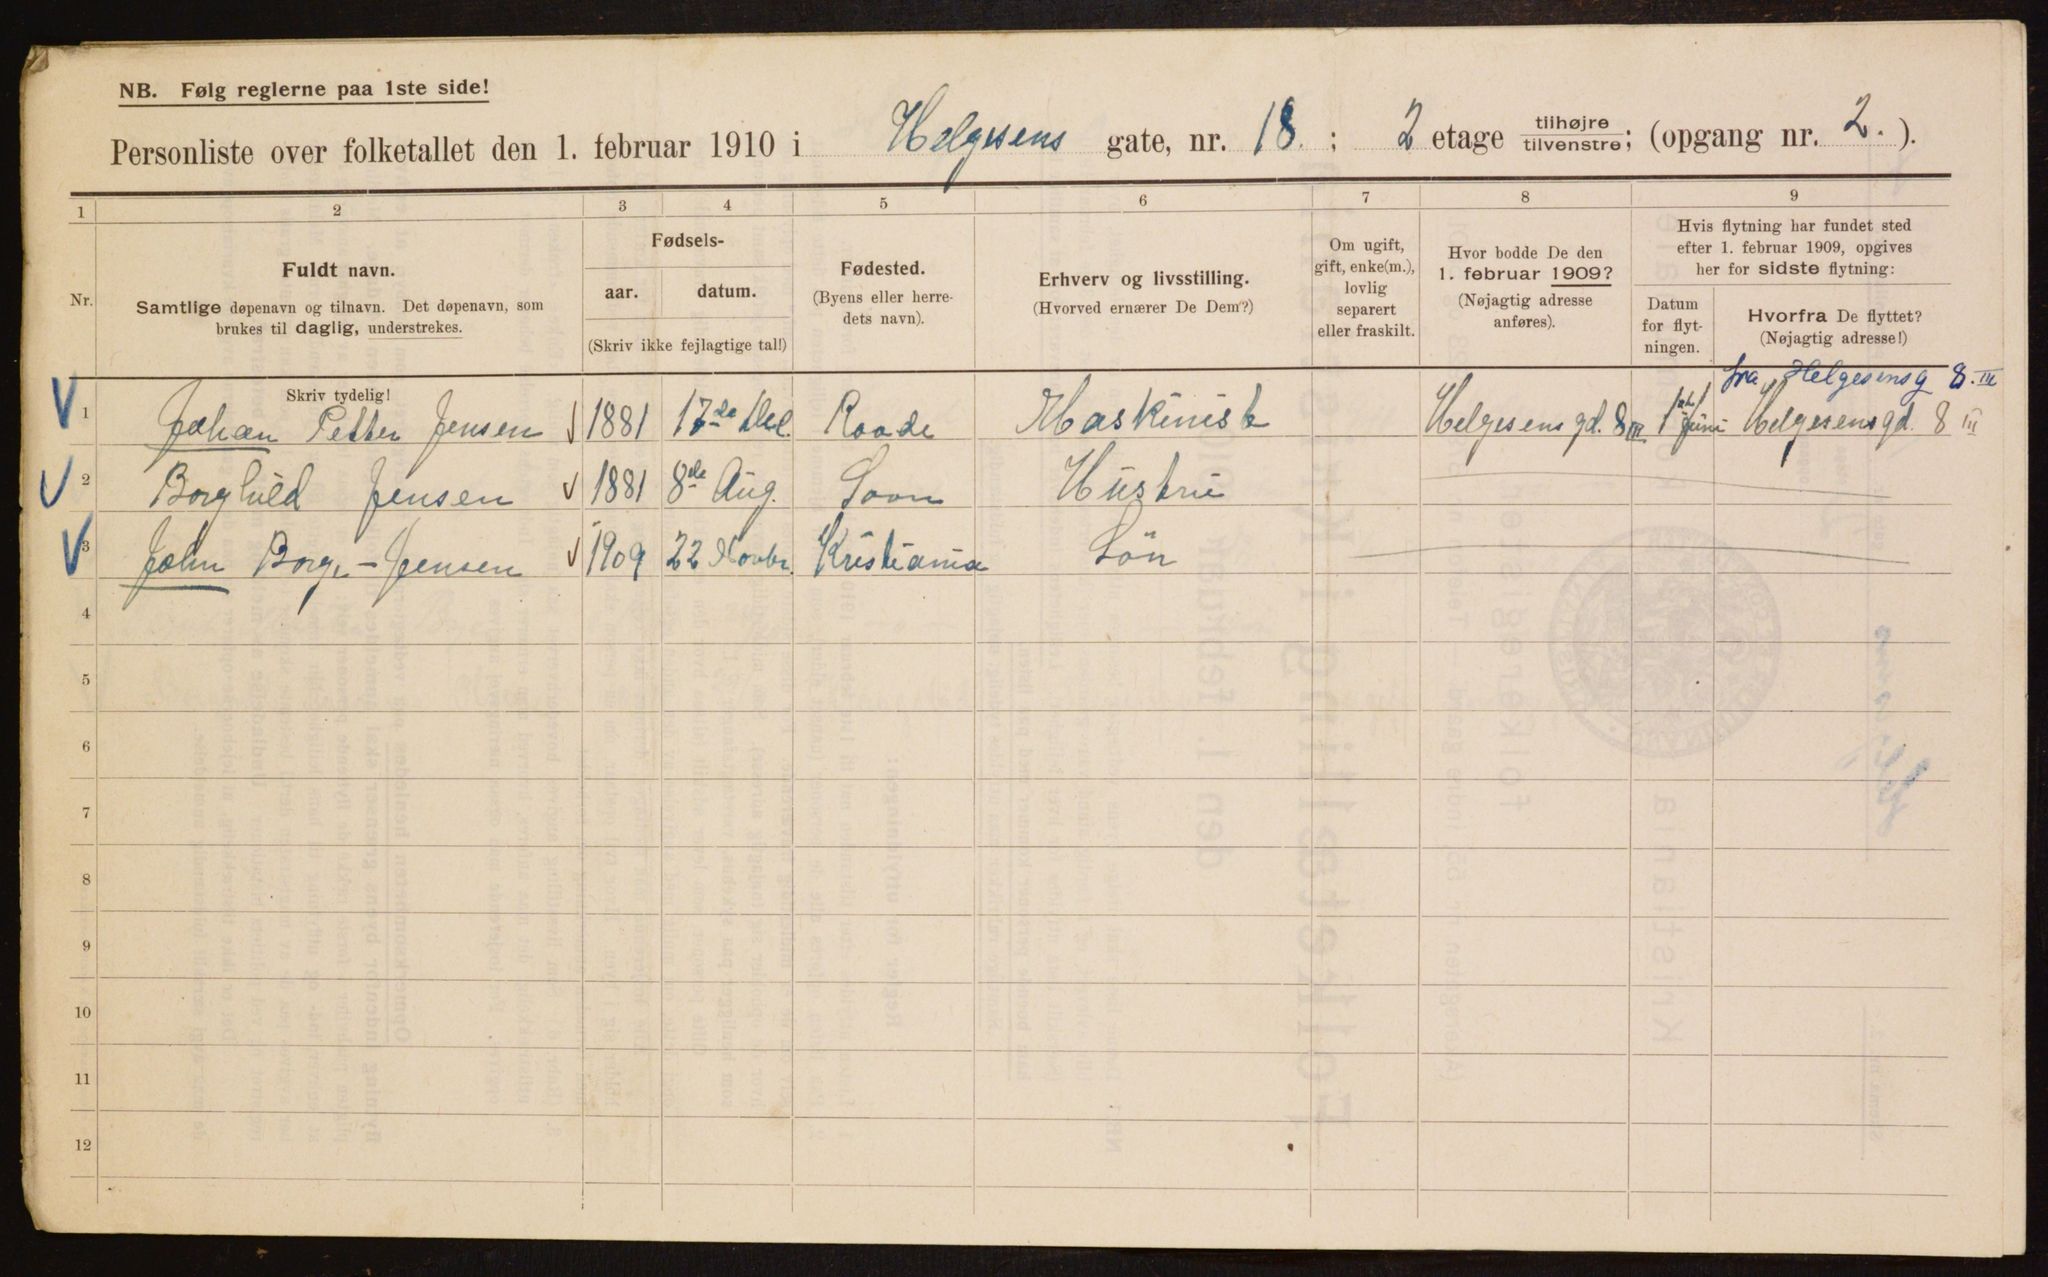 NB. Følg reglerne paa 1ste side!
Personliste over folketallet den 1. februar 1910 i Helgesens gate, nr. 18 ; 2 etage tilhøjre/tilvenstre; (opgang nr. 2. ).
1 2 3 4 5 6 7 8 9
Nr.
Fuldt navn.
Samtlige døpenavn og tilnavn. Det døpenavn, som
brukes til daglig, understrekes.
Fødsels-
aar. datum.
(Skriv ikke fejlagtige tal!)
Fødested.
(Byens eller herre-
dets navn).
Erhverv og livsstilling.
(Hvorved ernærer De Dem?)
Om ugift,
gift, enke(m.),
lovlig
separert
eller fraskilt.
Hvor bodde De den
1. februar 1909?
(Nøjagtig adresse
anføres).
Hvis flytning har fundet sted
efter 1. februar 1909, opgives
her for sidste flytning:
Datum
for flyt-
ningen.
Hvorfra De flyttet?
(Nøjagtig adresse!)
Skriv tydelig!
fra Helgesensg 8.III
1 Johan Petter Jensen 1881 17de Dec. Raade Maskinist Helgesens gd. 8 III 1 Juni Helgesens gd. 8 III
2 Borghild Jensen 1881 8de Aug. Soon Hustru
3 John Borge-Jensen 1909 22 Novbr. Kristiania Søn
4
5
6
7
8
9
10
11
12